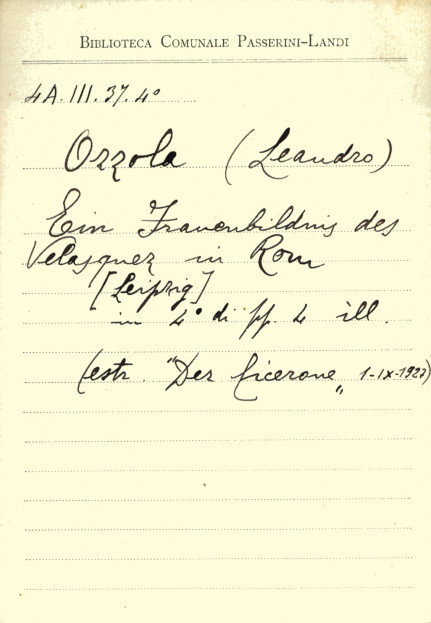 BIBLIOTECA COMUNALE PASSERINI-LANDI
4A.III.37.4°
Ozzola (Leandro)
Ein Frauenbildnis des
Velasquez in Rom
[Leipzig]
in 4° di pp. 4 ill.
(estr. "Der Cicerone„ 1-IX-1922)